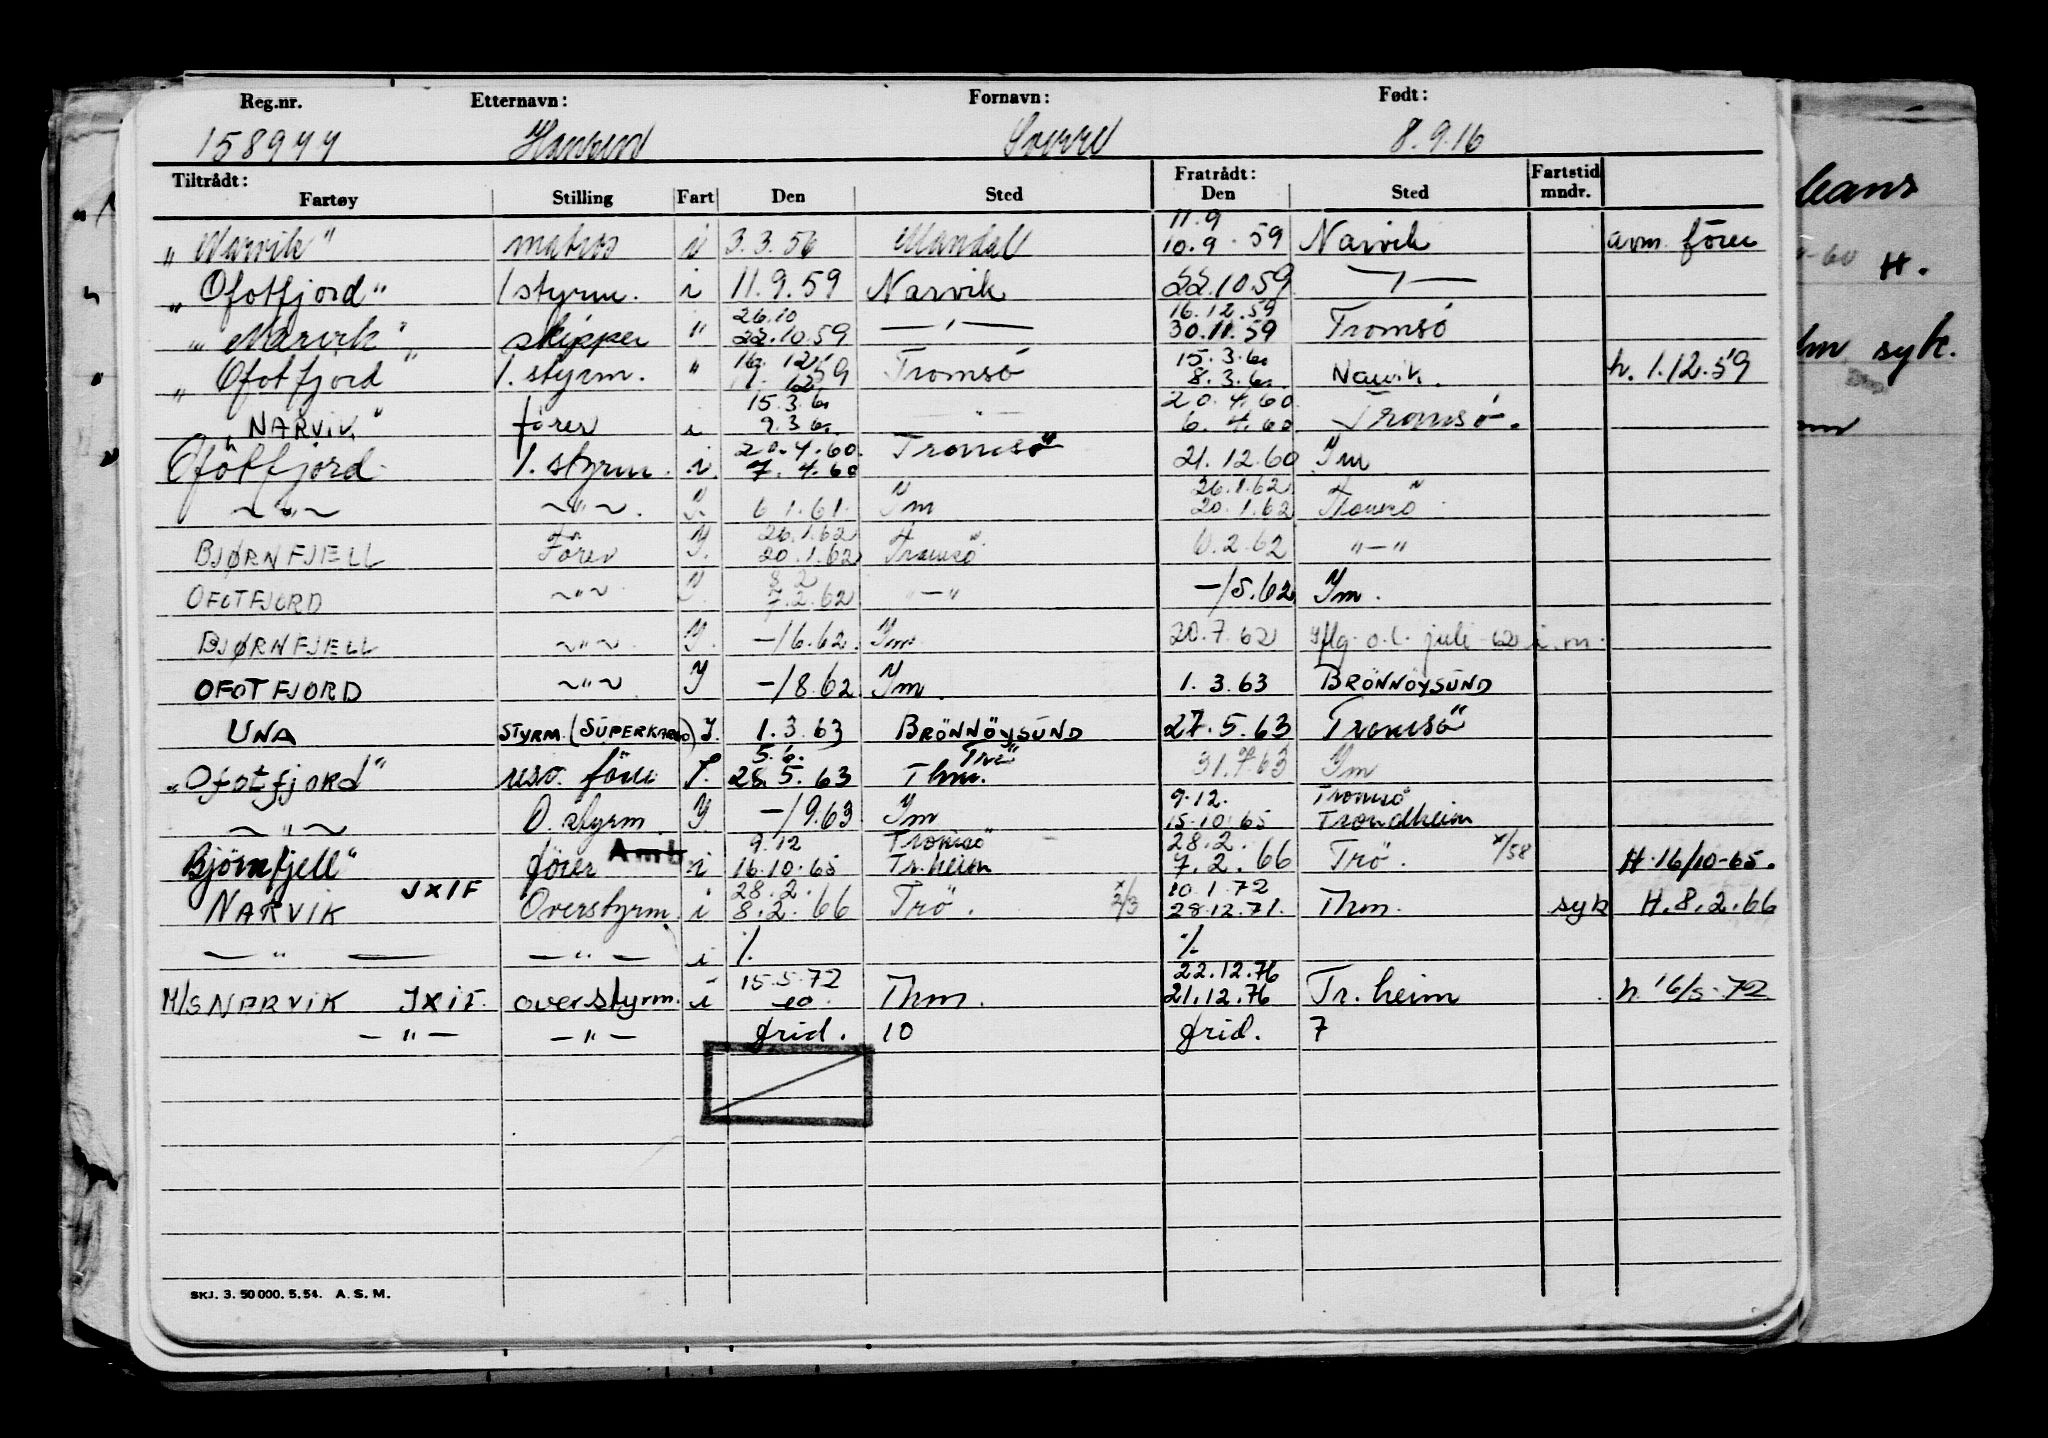 Reg.nr. Etternavn: Fornavn: Født:
158944 Hansen Sverre 8.9.16
Tiltrådt: Fratrådt: Fartstid
Fartøy Stilling Fart Den Sted Den Sted mndr.
11.9
„Narvik" matros i 3.3.56 Mandal 10.9.59 Narvik avm. förer
„Ofotfjord" 1 styrm. i 11.9.59 Narvik 22.10.59 — " —
26.10 16.12.59
„Narvik" skipper " 22.10.59 — " — 30.11.59 Tromsö
16.12.59 15.3.60
„Ofotfjord" 1. styrm. " 1.12.59 Tromsö 8.3.60 Narvik. h. 1.12.59
15.3.60 20.4.60
„NARVIK" förer i 9.3.60 — " — 6.4.60 Tromsö.
20.4.60.
Ofotfjord. 1. styrm. i. 7.4.60 Tromsö 21.12.60 Ym
26.1.62
~ " ~ ~ " ~ . Y. 6.1.61. Ym 20.1.62 Tromsö
26.1.62
BJØRNFJELL Förer Y. 20.1.62 Tromsö 6.2.62 " — "
8.2
OFOTFJORD ~ " ~ Y. 7.2.62 " — " —/5.62 Ym.
BJØRNFJELL ~ " ~ Y. —/6.62. Ym. 20.7.62 Iflg. o.l. juli-62 i.m.
OFOTFJORD ~ " ~ Y —/8.62 Ym. 1.3.63 BRÖNNÖYSUND
UNA STYRM. (SUPERKARGO) Y. 1.3.63 BRÖNNÖYSUND 27.5.63 Tromsö
5.6. Trö
„Ofotfjord" res. förer Y. 28.5.63 Thm. 31.7.63 Ym
9.12. Tromsö
~ " ~ O. styrm. Y —/9.63 Ym 15.10.65 Trondheim
9.12 Tromsö 28.2.
Bjömfjell" förer Amb i 16.10.65 Tr.heim 7.2.66 Trö. x/58 H.16/10-65.
28.2. 10.1.72
NARVIK JXIF Overstyrm. i 8.2.66 Trö. x2/3 28.12.71. Thm. syk H.8.2.66
— " — — " — i %. %.
15.5.72 22.12.76
M/S NARVIK JXIF. overstyrm. i Thm. 21.12.76 Tr.heim h. 16/5-72
— " — — " — grid. 10 grid. 7
SKJ. 3. 50 000. 5.54. A.S.M.
H.
syk.